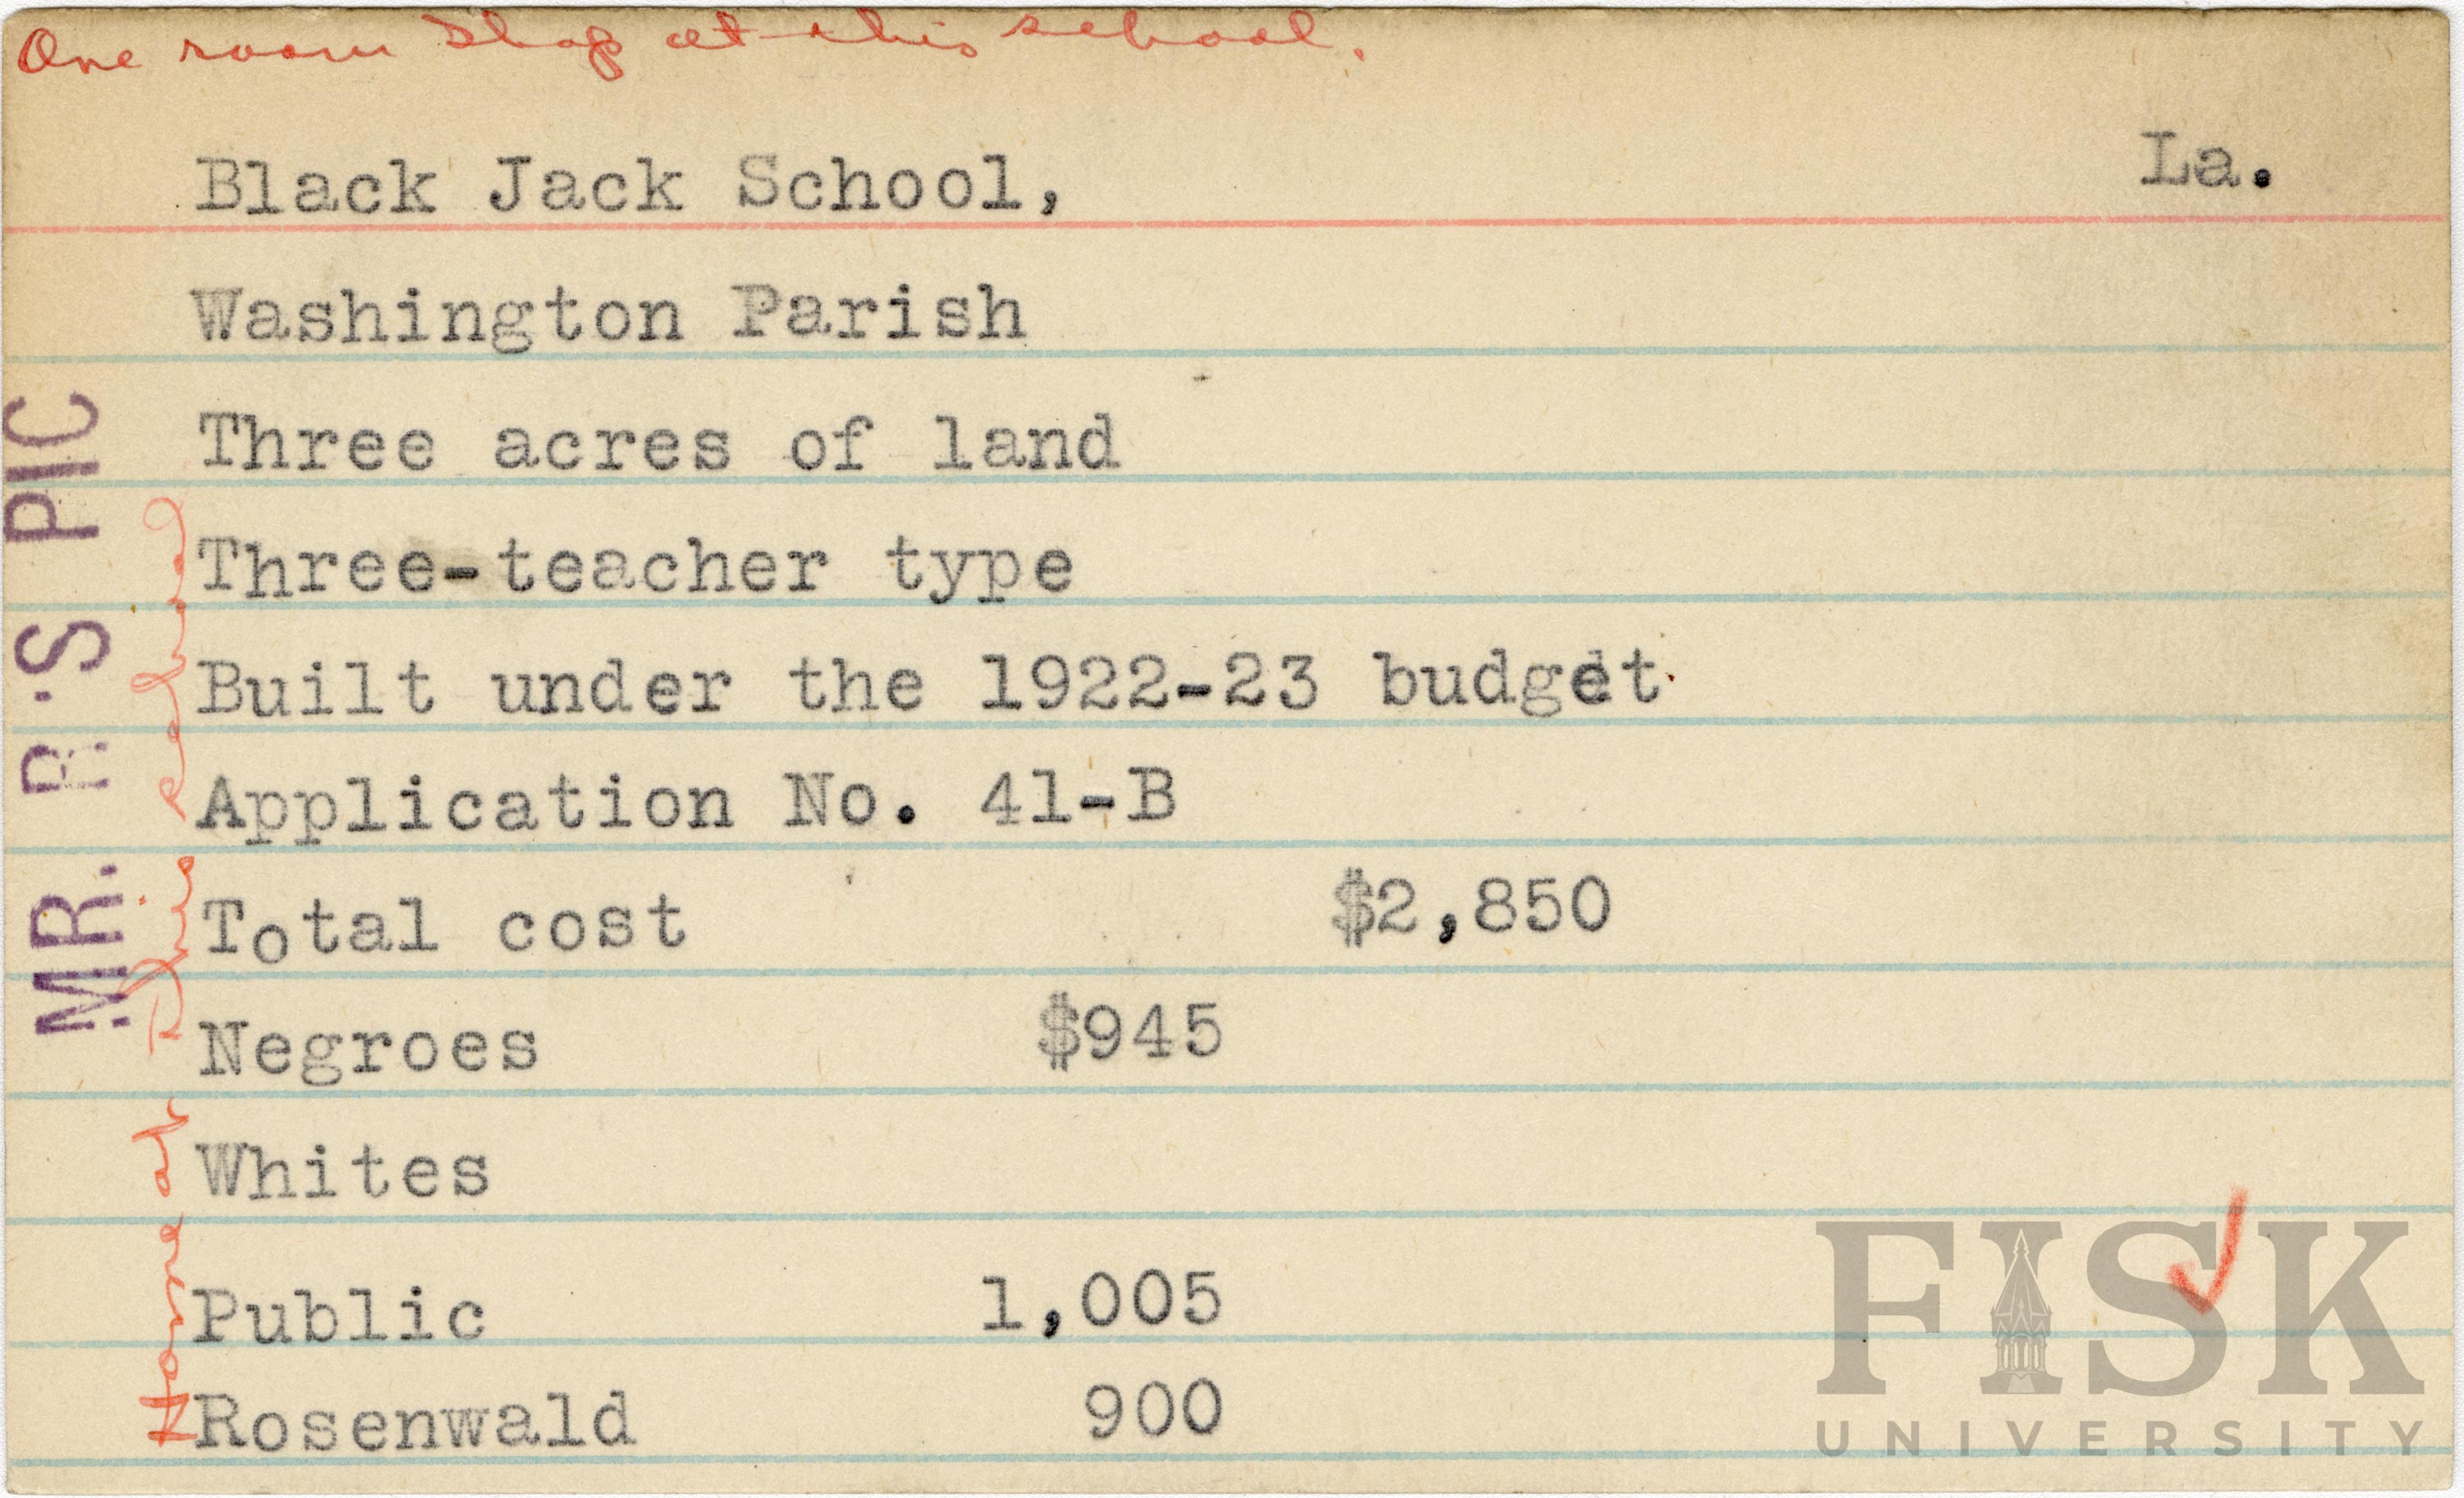 One room Shop at this school.
Black Jack School,
La.
Washington Parish
Three acres of land
Three-teacher type
Built under the 1922-23 budget
Application No. 41-B
Total cost $2,850
Negroes $945
Whites
Public 1,005
Rosenwald 900
MR. R.S PIC
Home at This school
FISK
UNIVERSITY